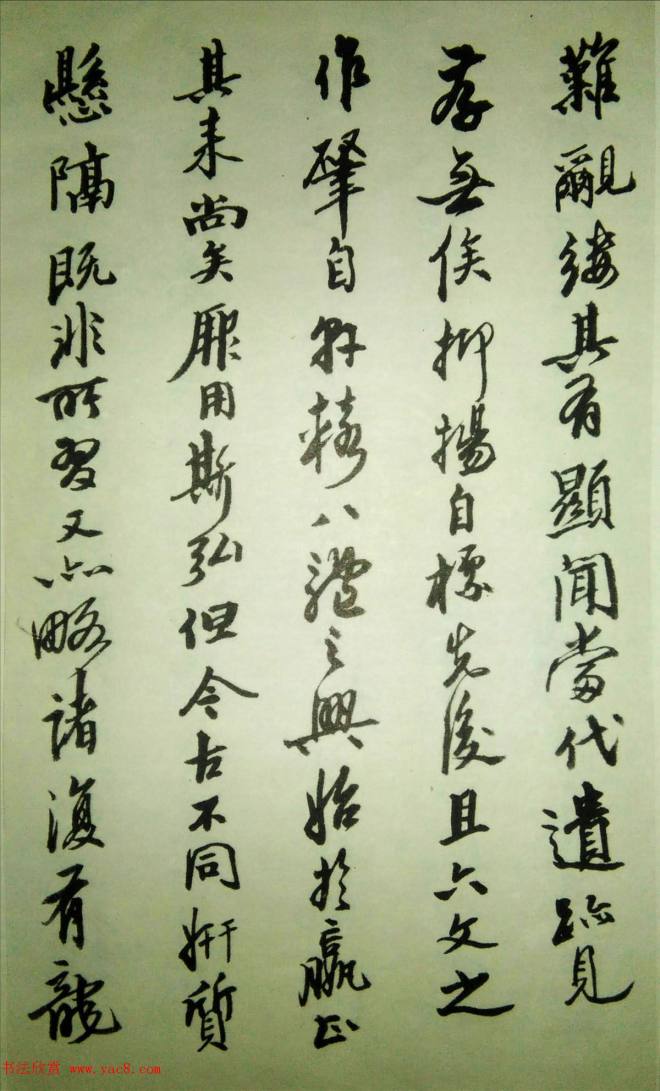 難覼縷其有顯聞當代遺跡見
存無俟抑揚自標先後且六文之
作肇自軒轅八體之興始於嬴正
其來尚矣厥用斯弘但今古不同妍質
懸隔既非所習又亦略諸復有龍
书法欣赏 www.yac8.com